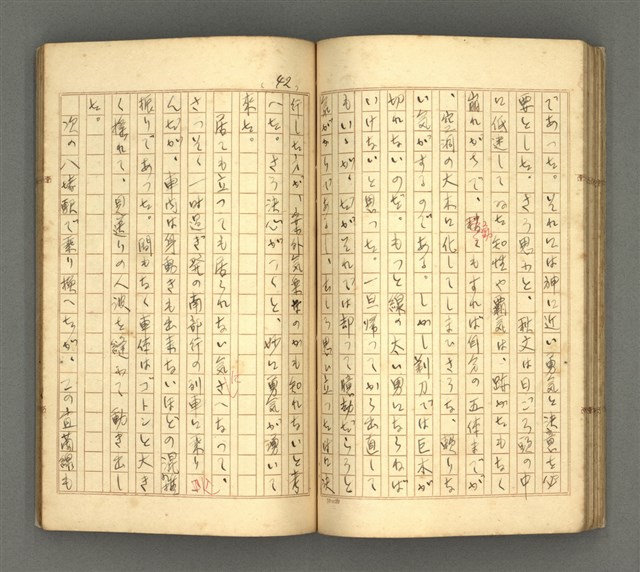 であった。それには神に近い勇気と決意を必
要とした。さう思ふと、敬文は日ごろ頭の中
に低迷してゐた知性や霸気は、跡かたもなく
崩れかけて、動ともすれば自分の五体までが
、空洞の大木に化してしまひさうな、頼りな
い気がするのである。しかし剃刀では巨木が
切れないのだ。もっと線の太い男にならねば
いけないと思った。一旦帰ってから出直して
もいゝが、だがそれでは却って騒動だらうと
気がからであるし、むしろ思ひ立った日に決
42
行した方が、案外気楽なのかも知れないと考
へた。さう決心がつくと、妙に勇気が湧いて
来た。
居ても立っても居られない気にさへなって、
さっそく一時過ぎ発の南部行の列車に乗り込
んだが、車内は身動きも出来ないほどの混雑
振りであった。間もなく車体はゴトンと大き
く揺れて、見送りの人波を縫って動き出し
た。
次の八堵駅で乗り換へたが、この宜蘭線も